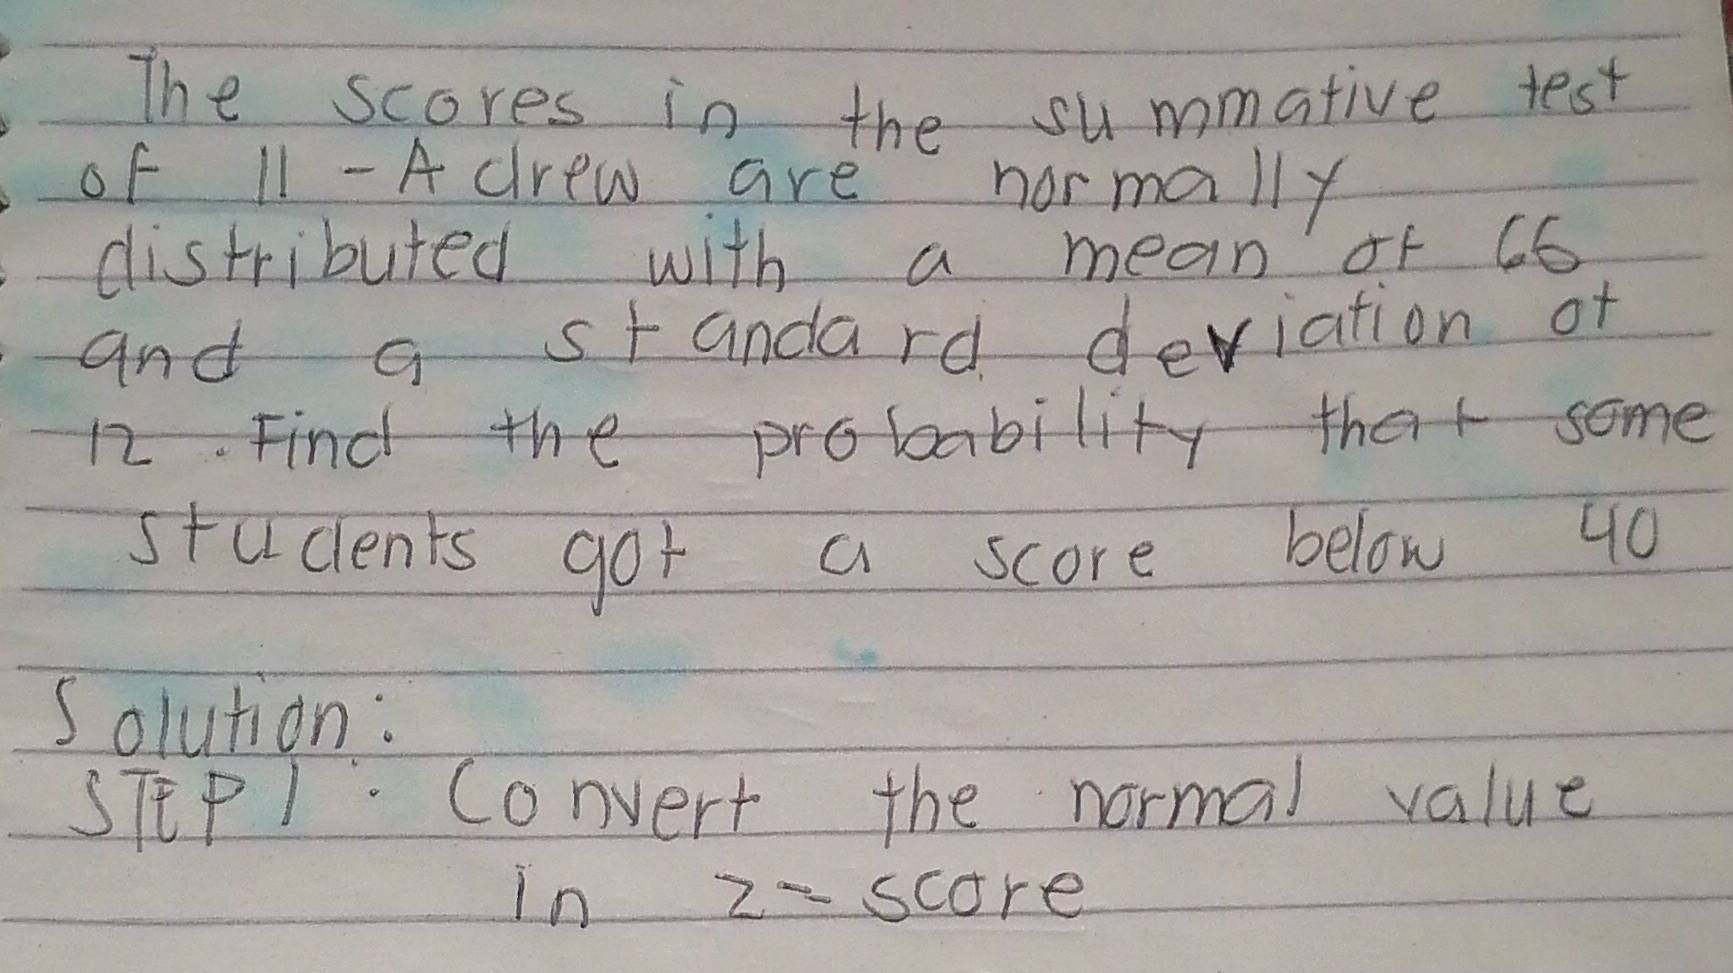 The scores in the summative test
of 11-Adrew are normally
distributed with a mean of 66
and a standard deviation of
12. Find the probability that some
students got a score below 40
Solution:
STEP 1: Convert the normal value
in z-score